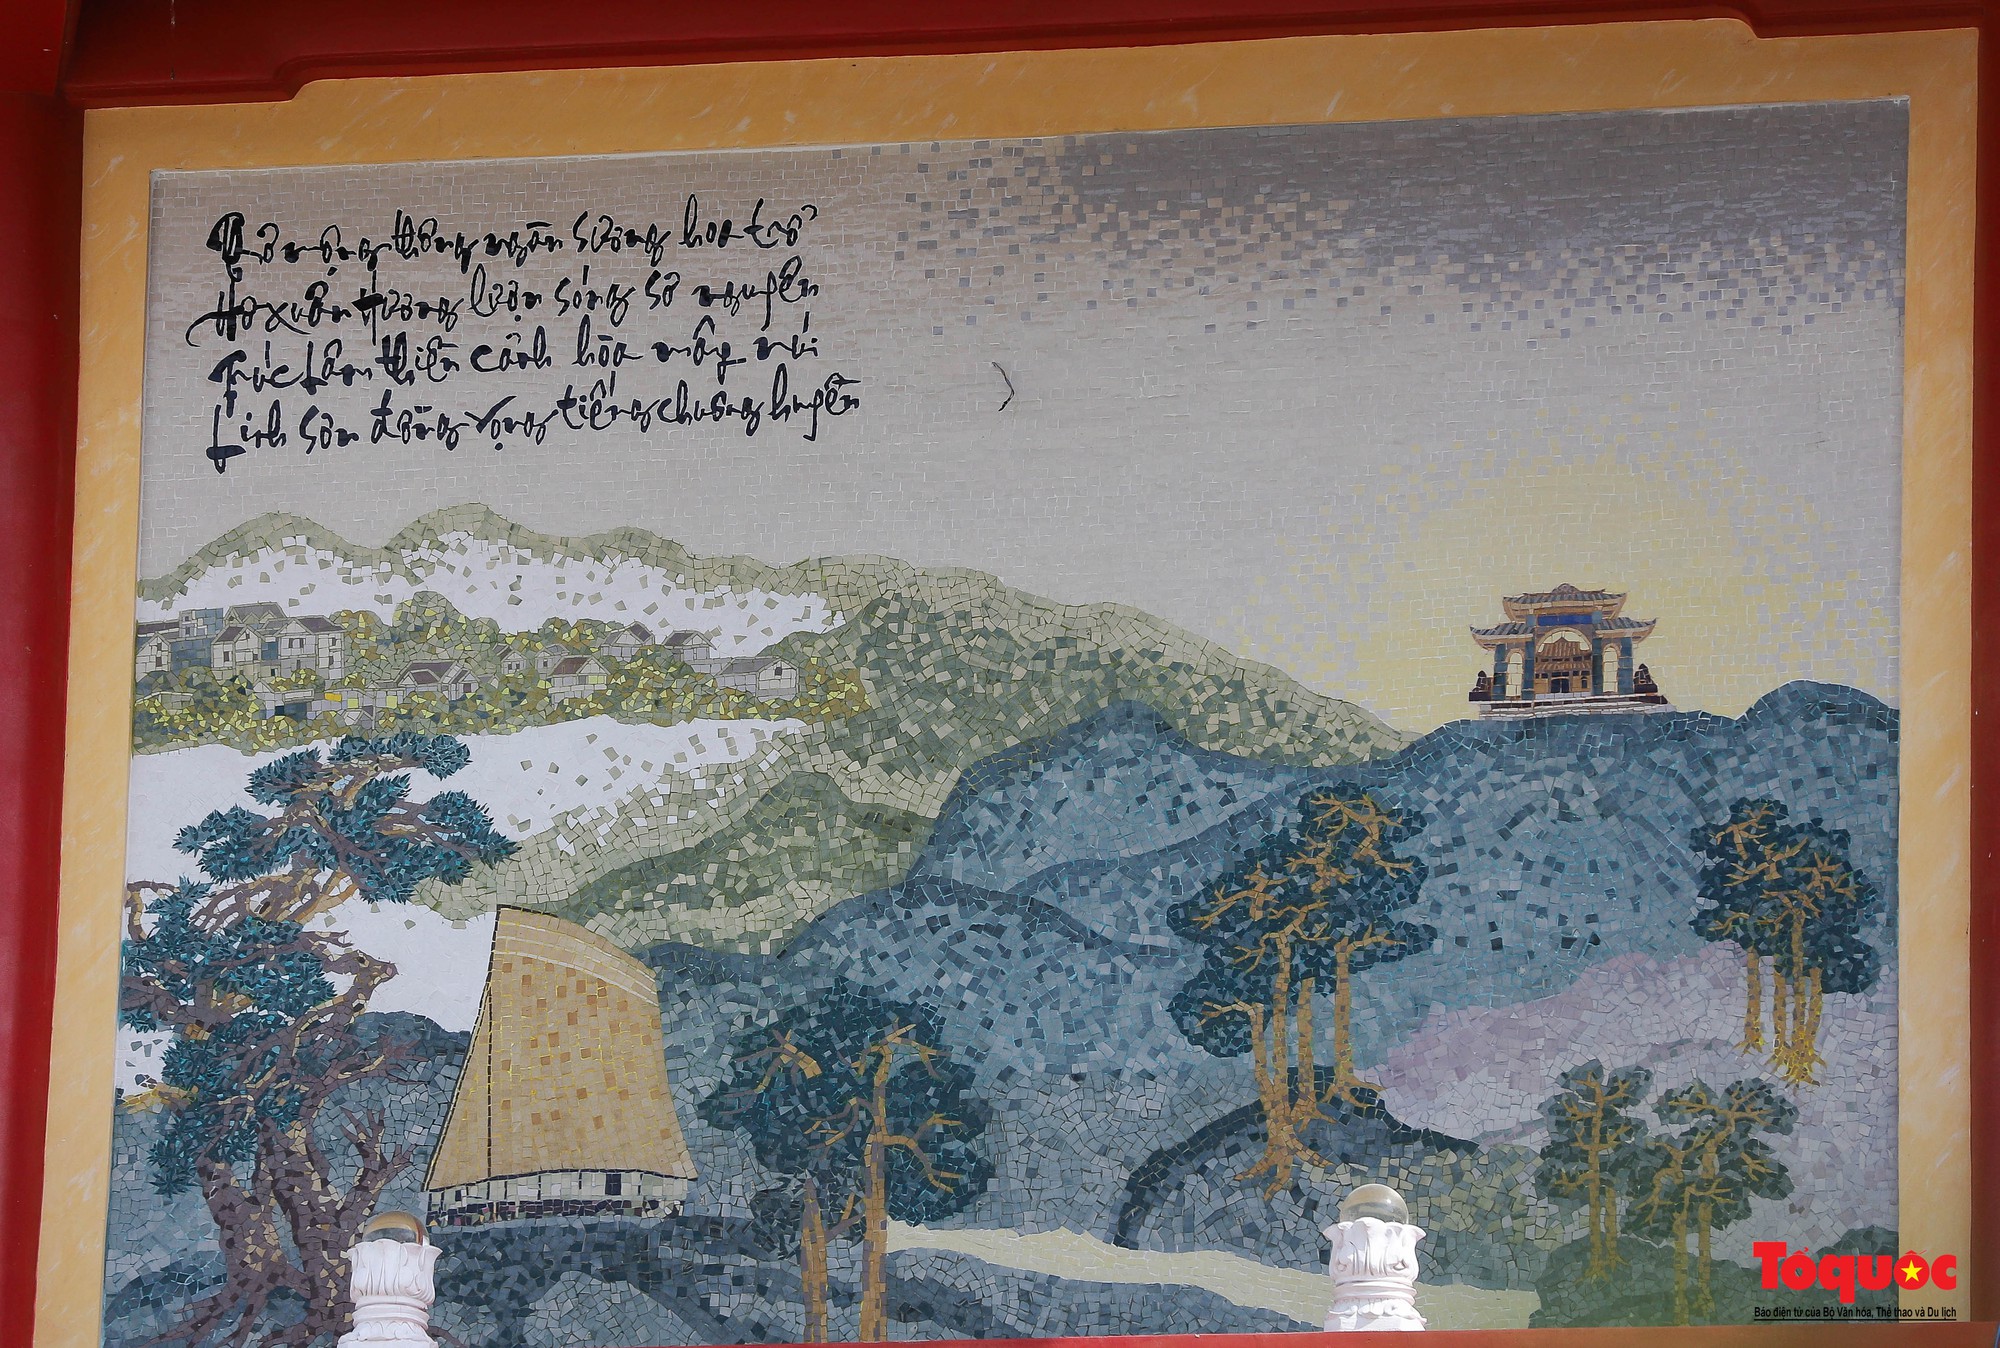 Đồi mộng thông ngàn sương hoa trổ
Hồ Xuân Hương lượn sóng sơ nguyên
Trúc Lâm thiền cảnh hòa mây núi
Linh Sơn đồng vọng tiếng chuông huyền
Tổ quốc
Báo điện tử của Bộ Văn hóa, Thể thao và Du lịch